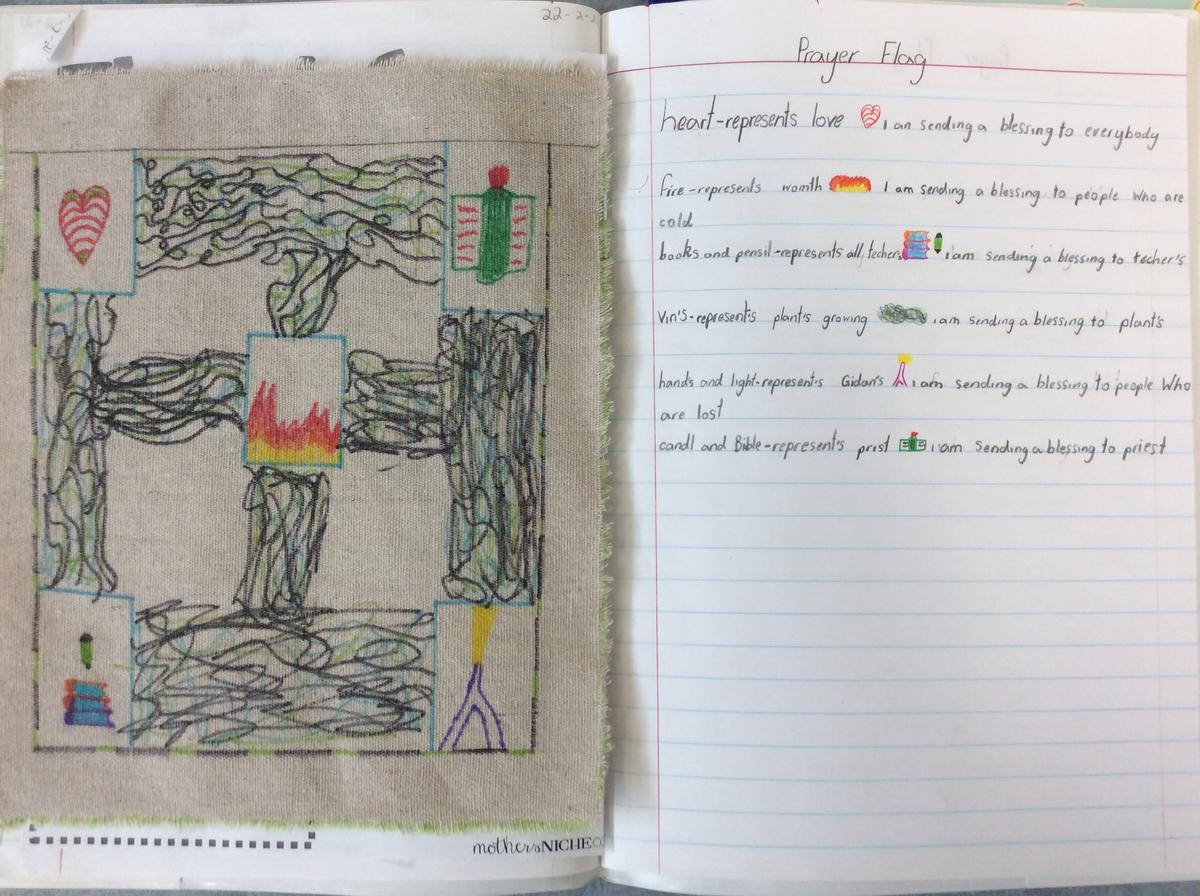 22-2-2
Prayer Flag
heart-represents love i an sending a blessing to everybody
fire-represents womth I am sending a blessing to people who are
cold
books and pensil-represents all techers i am sending a blessing to techer's
Vin's-represents plant's growing i am sending a blessing to plant's
hands and light-represents Gidan's i am sending a blessing to people Who
are lost
candl and Bible-represent's prist i am sending a blessing to priest
mothersNICHE